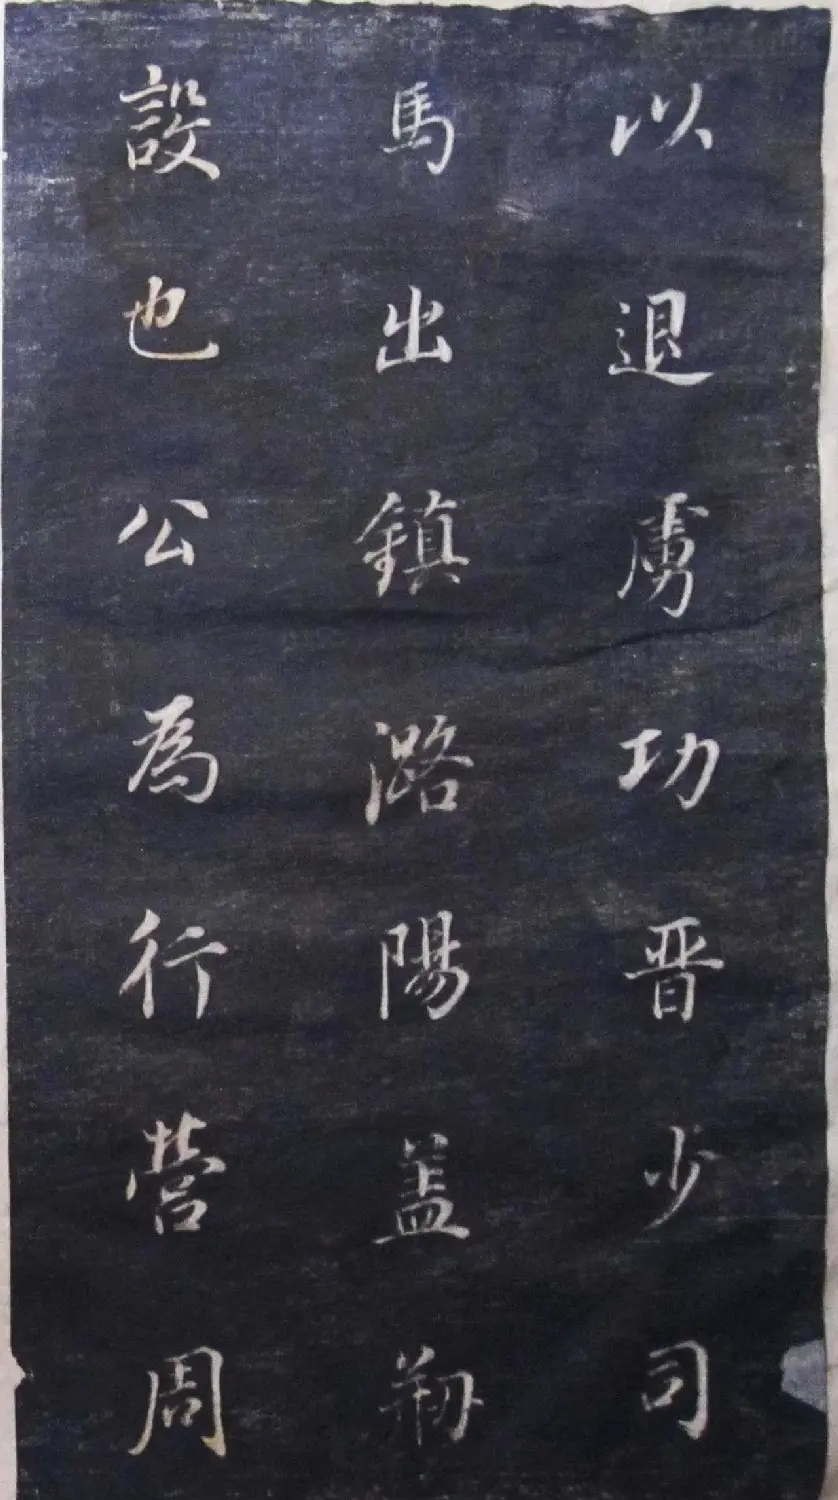 以退虜功晋少司
馬出鎮潞陽蓋剏
設也公為行營周